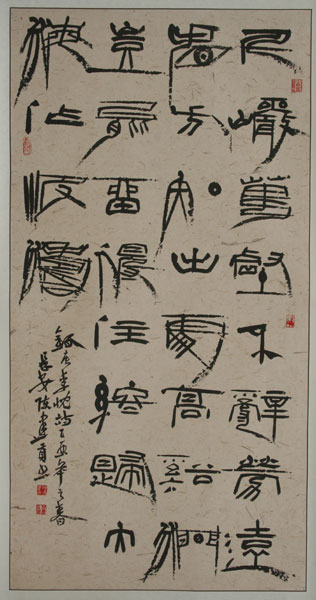 千巖萬壑不辭勞遠
看方知出處高谿澗
豈能留得住終歸大
海作波濤
錄唐李忱詩乙酉年之春
長安陳建貢書